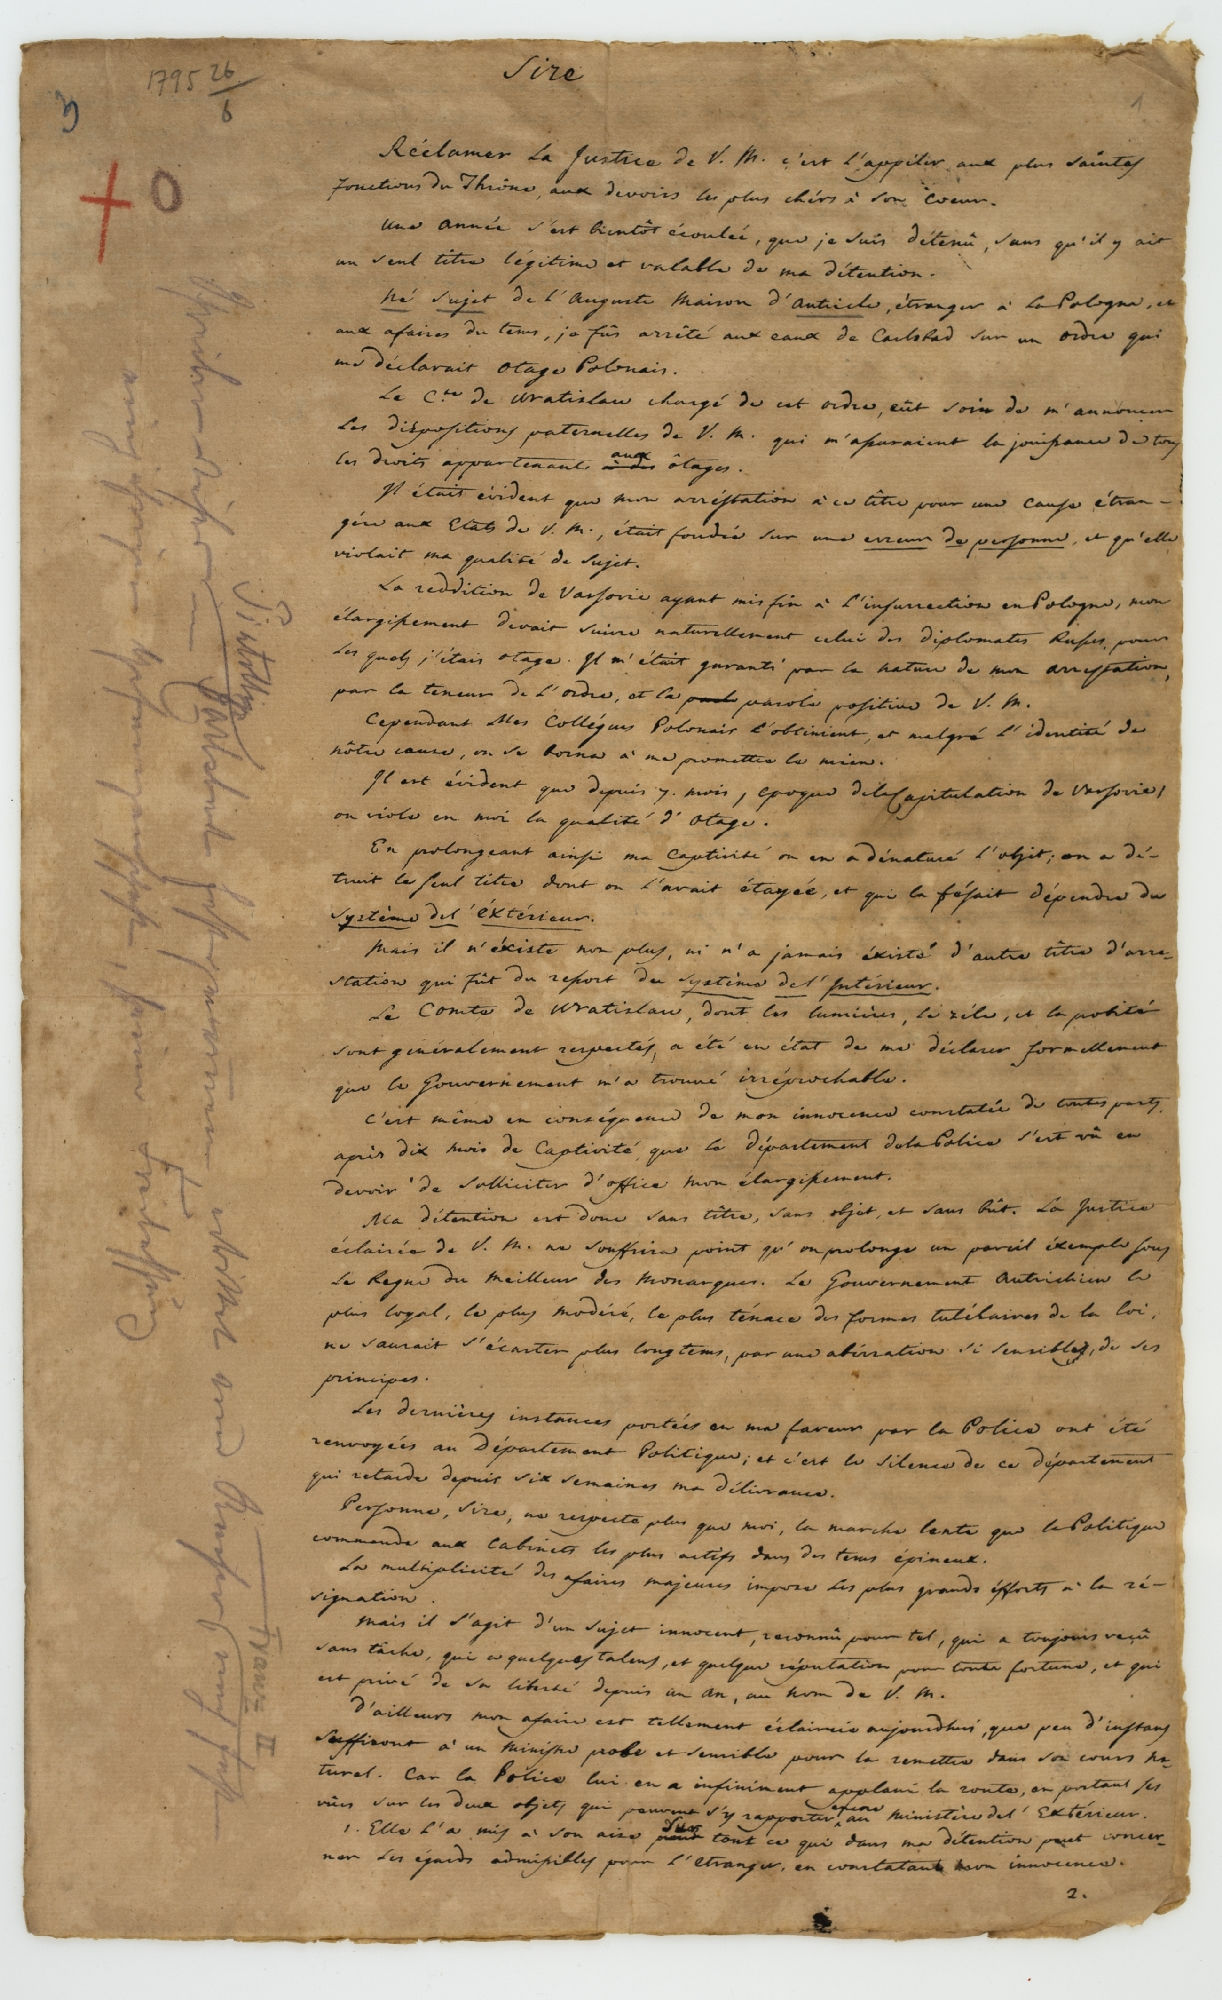 1795 26/6
1
Sire
Réclamer la Justice de V. M. c'est l'appeler aux plus saintes
fonctions du Thrône, aux devoirs les plus chérs à son Coeur.
Une année s'est bientôt écoulée, que je suis détenû, sans qu'il y ait
un seul titre légitime et valable de ma détention.
Né Sujet de l'Auguste Maison d'Autriche, étranger à la Pologne, et
aux afaires du tems, je fûs arrêté aux eaux de Carlsbad sur un ordre qui
me déclarait Otage Polonais.
Le Cte de Wratislaw chargé de cet ordre, eût soin de m'annoncer
les dispositions paternelles de V. M. qui m'assuraient la jouissance de tous
les droits appartenants aux ôtages.
Il était évident que mon arréstation à ce tître pour une cause étran-
gère aux Etats de V. M., était fondée sur une erreur de personne, et qu'elle
violait ma qualité de Sujet.
La reddition de Varsovie ayant mis fin à l'insurrection en Pologne, mon
élargissement devait suivre naturellement celui des diplomates Russes, pour
les quels j'étais otage. Il m'était garanti par la nature de mon arrestation,
par la teneur de l'ordre, et la parole positive de V. M.
Cependant Mes Collégues Polonais l'obtinrent, et malgré l'identité de
nôtre cause, on se borna à me promettre le mien.
Il est évident que depuis 7. mois, époque de la Capitulation de Varsovie,
on viole en moi la qualité d'Otage.
En prolongeant ainsi ma Captivité on en a dénaturé l'objet; on a dé-
truit le seul titre dont on l'avait étayée, et qui la fésait dépendre du
Systême de l'éxtérieur.
Mais il n'éxiste non plus, ni n'a jamais éxisté d'autre titre d'arre-
station qui fût du ressort du Systême de l'Intérieur.
Le Comte de Wratislaw, dont les lumières, le zéle, et la probité
sont généralement respectés, a été en état de me déclarer formellement
que le Gouvernement m'a trouvé irréprochable.
C'est même en conséquence de mon innocence constatée de toutes parts
après dix mois de Captivité, que le département de la Police s'est vû en
devoir de solliciter d'office mon élargissement.
Ma détention est donc sans titre, sans objet, et sans bût. La Justice
éclairée de V. M. ne souffrira point qu'on prolonge un pareil éxemple sous
le Regne du Meilleur des Monarques. Le Gouvernement Autrichien le
plus loyal, le plus modéré, le plus ténace des formes tutélaires de la loi,
ne saurait s'écarter plus longtems, par une abérration si sensible, de ses
principes.
Les dernières instances portées en ma faveur par la Police ont été
renvoyées au Département Politique; et c'est le silence de ce département
qui retarde depuis six semaines ma délivrance.
Personne, Sire, ne respecte plus que moi, la marche lente que la Politique
commande aux Cabinets les plus actifs dans des tems épineux.
La multiplicité des afaires majeures impose les plus grands éfforts à la ré-
signation.
Mais il s'agit d'un Sujet innocent, reconnû pour tel, qui a toujours vecû
sans tâche, qui a quelques talens, et quelque réputation pour toute fortune, et qui
est privé de sa liberté depuis un an, au nom de V. M.
D'ailleurs mon afaire est tellement éclaircie aujourdhui, que peu d'instans
Suffiront à un Ministre probe et sensible pour la remettre dans son cours na-
turel. Car la Police lui en a infiniment applani la route, en portant ses
vües sur les deux objets qui peuvent s'y rapporter encore au Ministère de l'Extérieur.
1. Elle l'a mis à son aise sur tout ce qui dans ma détention peut concer-
ner les égards admissibles pour l'etranger, en constatant mon innocence.
2.
Franz II